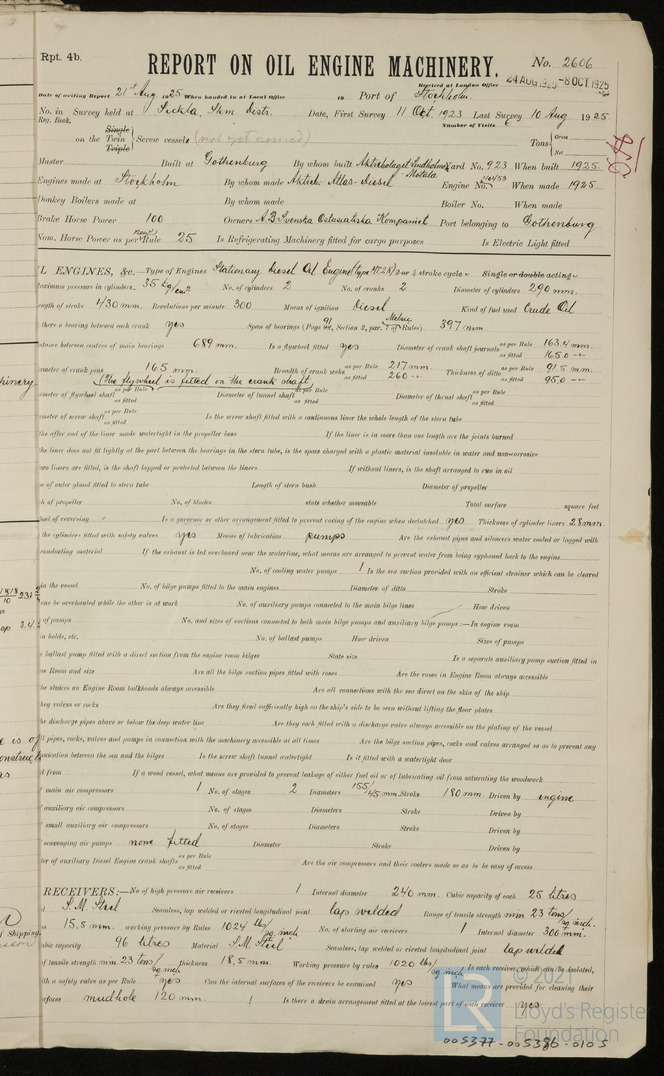 Rpt. 4b.
REPORT ON OIL ENGINE MACHINERY.
No. 2606
Received at London Office
24 AUG 1925 -8 OCT 1925
Date of writing Report 21st Aug 1925 When handed in at Local Office 19 Port of Stockholm.
No. in Survey held at Sickla Date, First Survey 11 Oct. 1923 Last Survey 10 Aug. 1925
Reg. Book. Number of Visits
on the Single Twin Triple Screw vessels (not yet named) Tons Gross Net
Master Built at Gothenburg By whom built Aktiebolaget Lindholmen Motala Yard No. 923 When built 1925.
Engines made at Stockholm By whom made Aktieb. Atlas-Diesel Engine No. When made 1925.
Donkey Boilers made at By whom made Boiler No. When made
Brake Horse Power 100 Owners A.B. Svenska Ostasiatiska Kompaniet Port belonging to Gothenburg
Nom. Horse Power as per Rule 25 Is Refrigerating Machinery fitted for cargo purposes Is Electric Light fitted
L ENGINES, &c.—Type of Engines Stationary Diesel Oil Engine 2 or 4 stroke cycle Single or double acting
maximum pressure in cylinders 35 kg/cm2 No. of cylinders 2 No. of cranks 2 Diameter of cylinders 290 mm.
length of stroke 430 mm. Revolutions per minute 300 Means of ignition Diesel Kind of fuel used Crude Oil
there a bearing between each crank yes Span of bearings (Page 92, Section 2, par. 7 of Rules) Metric 397 mm.
distance between centres of main bearings 689 mm. Is a flywheel fitted yes Diameter of crank shaft journals as per Rule 163.4 mm. as fitted 165.0
diameter of crank pins 165 mm. Breadth of crank webs as per Rule 217 mm. as fitted 260 Thickness of ditto as per Rule 91.5 mm. as fitted 95.0
(The flywheel is fitted on the crank shaft
ameter of flywheel shaft as per Rule as fitted Diameter of tunnel shaft as per Rule as fitted Diameter of thrust shaft as per Rule as fitted
ameter of screw shaft as per Rule as fitted Is the screw shaft fitted with a continuous liner the whole length of the stern tube
the after end of the liner made watertight in the propeller boss If the liner is in more than one length are the joints burned
the liner does not fit tightly at the part between the bearings in the stern tube, is the space charged with a plastic material insoluble in water and non-corrosive
two liners are fitted, is the shaft lapped or protected between the liners If without liners, is the shaft arranged to run in oil
e of outer gland fitted to stern tube Length of stern bush Diameter of propeller
h of propeller No. of blades state whether moveable Total surface square feet
hod of reversing Is a governor or other arrangement fitted to prevent racing of the engine when declutched yes Thickness of cylinder liners 28 mm.
the cylinders fitted with safety valves yes Means of lubrication pumps Are the exhaust pipes and silencers water cooled or lagged with
conducting material If the exhaust is led overboard near the waterline, what means are arranged to prevent water from being syphoned back to the engine
No. of cooling water pumps 1 Is the sea suction provided with an efficient strainer which can be cleared
in the vessel No. of bilge pumps fitted to the main engines Diameter of ditto Stroke
one be overhauled while the other is at work No. of auxiliary pumps connected to the main bilge lines How driven
of pumps No. and sizes of suctions connected to both main bilge pumps and auxiliary bilge pumps:—In engine room
n holds, etc. No. of ballast pumps How driven Sizes of pumps
e ballast pump fitted with a direct suction from the engine room bilges State size Is a separate auxiliary pump suction fitted in
ne Room and size Are all the bilge suction pipes fitted with roses Are the roses in Engine Room always accessible
the sluices on Engine Room bulkheads always accessible Are all connections with the sea direct on the skin of the ship
hey valves or cocks Are they fixed sufficiently high on the ship's side to be seen without lifting the floor plates
he discharge pipes above or below the deep water line Are they each fitted with a discharge valve always accessible on the plating of the vessel
pipes, cocks, valves and pumps in connection with the machinery accessible at all times Are the bilge suction pipes, cocks and valves arranged so as to prevent any
munication between the sea and the bilges Is the screw shaft tunnel watertight Is it fitted with a watertight door
d from If a wood vessel, what means are provided to prevent leakage of either fuel oil or of lubricating oil from saturating the woodwork
f main air compressors 1 No. of stages 2 Diameters 155/45 mm. Stroke 180 mm. Driven by engine
f auxiliary air compressors No. of stages Diameters Stroke Driven by
f small auxiliary air compressors No. of stages Diameters Stroke Driven by
f scavenging air pumps none fitted Diameter Stroke Driven by
ter of auxiliary Diesel Engine crank shafts as per Rule as fitted Are the air compressors and their coolers made so as to be easy of access
RECEIVERS:—No. of high pressure air receivers 1 Internal diameter 240 mm. Cubic capacity of each 25 litres
S.M. Steel Seamless, lap welded or riveted longitudinal joint lap welded Range of tensile strength min 23 tons/sq. inch.
15.5 mm. working pressure by Rules 1024 lbs/sq. inch No. of starting air receivers 1 Internal diameter 300 mm.
ubic capacity 96 litres Material S.M. Steel Seamless, lap welded or riveted longitudinal joint lap welded
of tensile strength min. 23 tons/sq. inch thickness 18.5 mm. Working pressure by rules 1020 lbs/sq. inch Is each receiver, which can be isolated,
ith a safety valve as per Rule yes Can the internal surfaces of the receivers be examined yes What means are provided for cleaning their
urfaces mudhole 120 mm. Is there a drain arrangement fitted at the lowest part of each receiver yes
© 2021
LR
Lloyd's Register
Foundation
005377-005386-0105